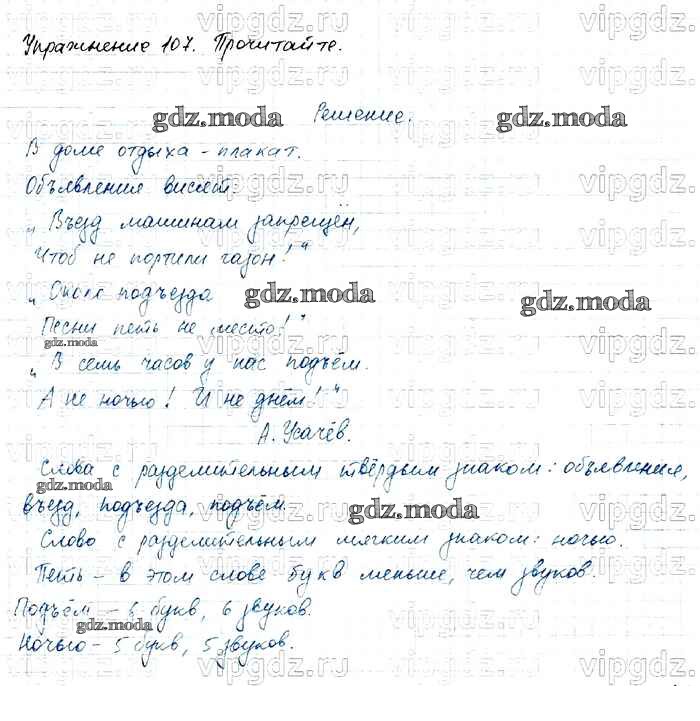 Упражнение 107. Прочитайте.
Решение.
В доме отдыха - плакат.
Объявления висят:
„ Въезд машинам запрещён,
Чтоб не портили газон!“
„ Около подъезда
Песни петь не место!“
„ В семь часов у нас подъём.
А не ночью! И не днём!“
А. Усачёв.
Слова с разделительным твёрдым знаком: объявления,
въезд, подъезда, подъём.
Слово с разделительным мягким знаком: ночью.
Петь - в этом слове букв меньше, чем звуков.
Подъём - 6 букв, 6 звуков.
Ночью - 5 букв, 5 звуков.
gdz.moda
vipgdz.ru